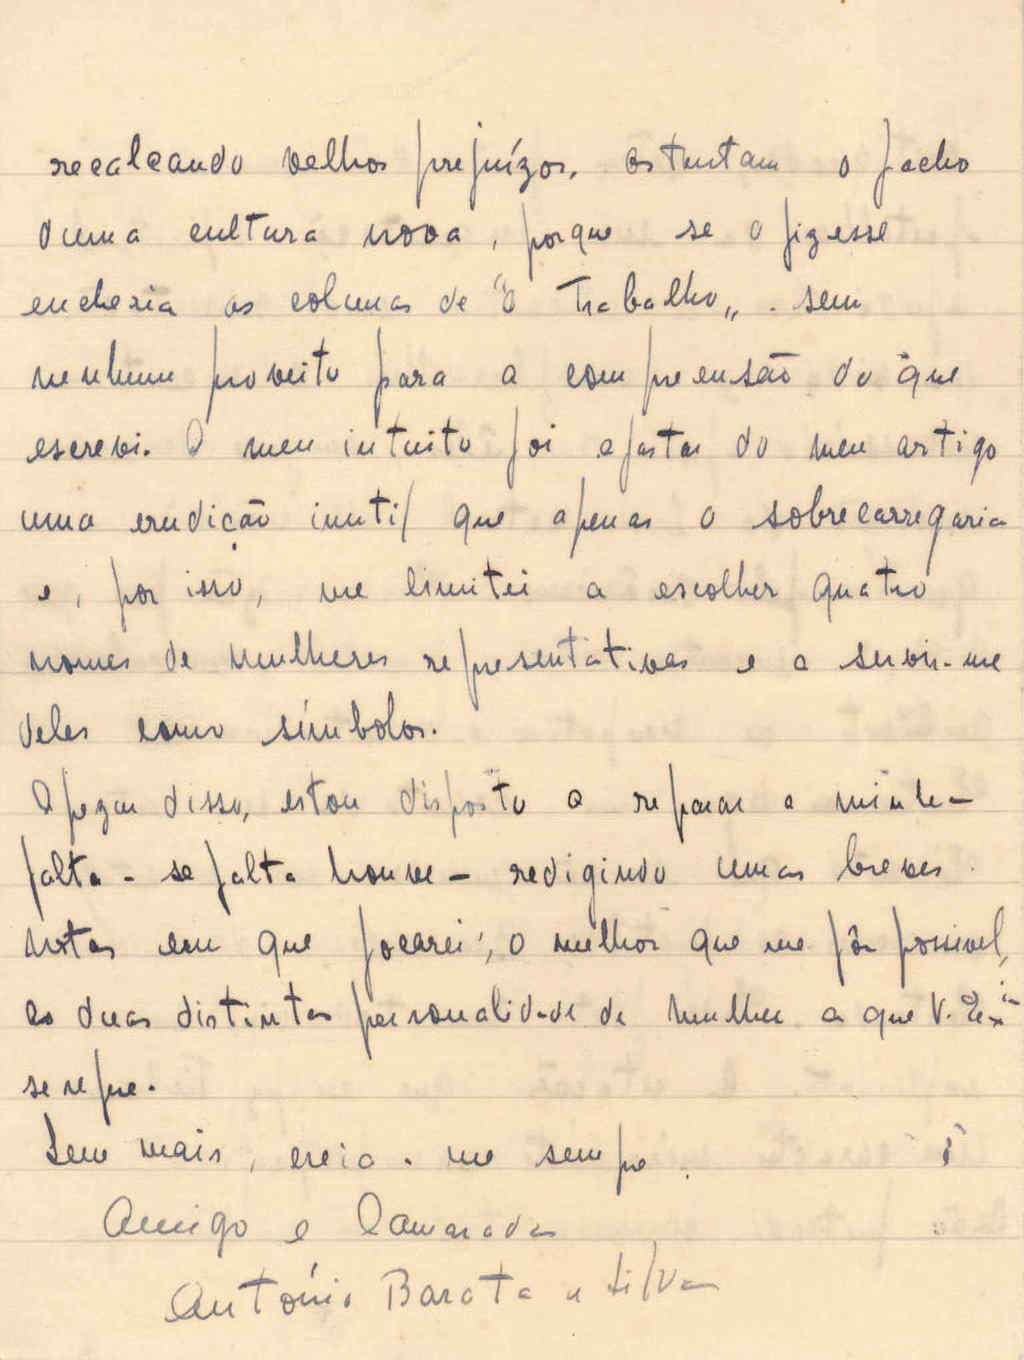 recalcando velhos prejuízos, ostentam o facho
duma cultura nova, porque se o fizesse
encheria as colunas de "O Trabalho„. sem
nenhum proveito para a compreensão do que
escrevi. O meu intuito foi afastar do meu artigo
uma erudição inutil que apenas o sobrecarregaria
e, por isso, me limitei a escolher quatro
nomes de mulheres representativas e a servir-me
deles como símbolos.
Apezar disso, estou disposto a reparar a minha
falta - se falta houve - redigindo umas breves
notas em que focarei, o melhor que me fôr possivel,
as duas distintas personalidade de mulher a que V. Exª
se refre.
Sem mais, creia-me sempre
Amigo e Camarada
António Barata e Silva